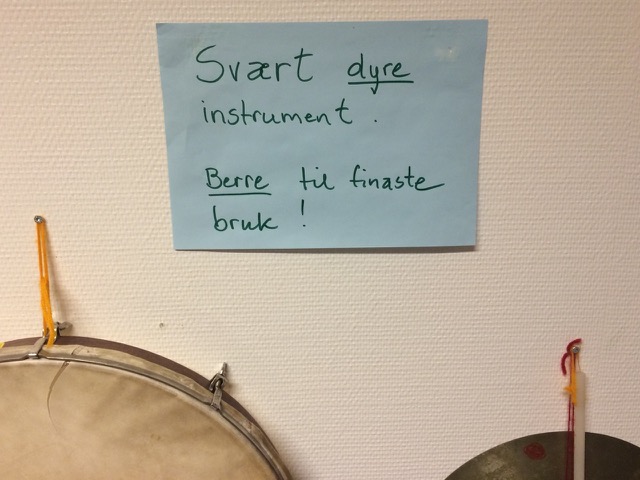 Svært dyre
instrument.
Berre til finaste
bruk!